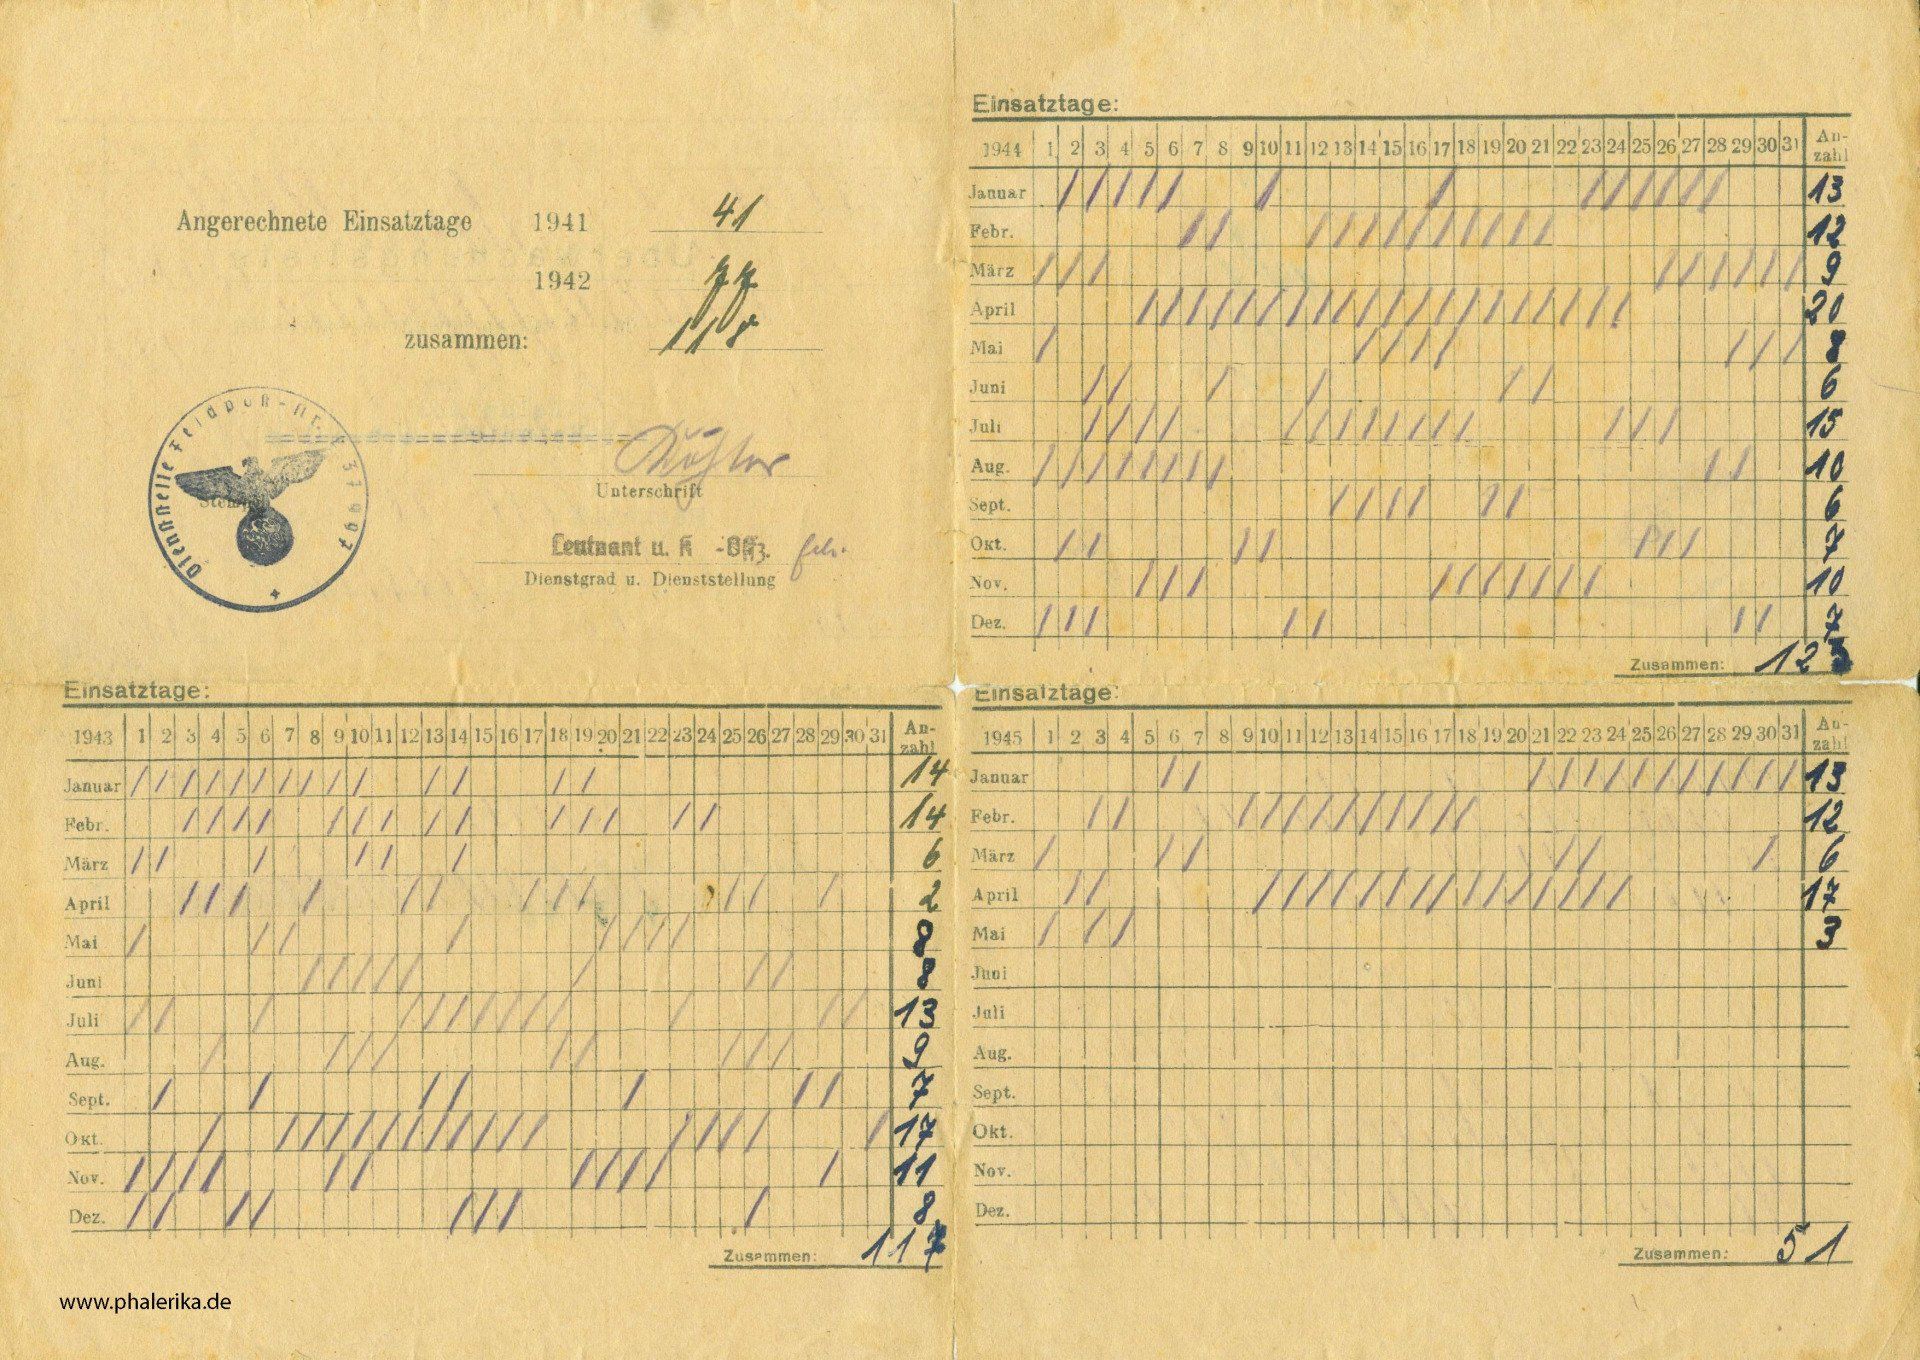 Angerechnete Einsatztage 1941 41
1942 77
zusammen: 118
Dienststelle Feldpost-Nr.
Unterschrift
Leutnant u. K -Offz.
Dienstgrad u. Dienststellung
Einsatztage:
1944 1 2 3 4 5 6 7 8 9 10 11 12 13 14 15 16 17 18 19 20 21 22 23 24 25 26 27 28 29 30 31 An-
zahl
Januar 13
Febr. 12
März 9
April 20
Mai 8
Juni 6
Juli 15
Aug. 10
Sept. 6
Okt. 7
Nov. 10
Dez. 7
Zusammen: 123
Einsatztage:
1943 1 2 3 4 5 6 7 8 9 10 11 12 13 14 15 16 17 18 19 20 21 22 23 24 25 26 27 28 29 30 31 An-
zahl
Januar 14
Febr. 14
März 6
April 2
Mai 8
Juni 8
Juli 13
Aug. 9
Sept. 7
Okt. 17
Nov. 11
Dez. 8
Zusammen: 117
Einsatztage:
1945 1 2 3 4 5 6 7 8 9 10 11 12 13 14 15 16 17 18 19 20 21 22 23 24 25 26 27 28 29 30 31 An-
zahl
Januar 13
Febr. 12
März 6
April 17
Mai 3
Juni
Juli
Aug.
Sept.
Okt.
Nov.
Dez.
Zusammen: 51
www.phalerika.de